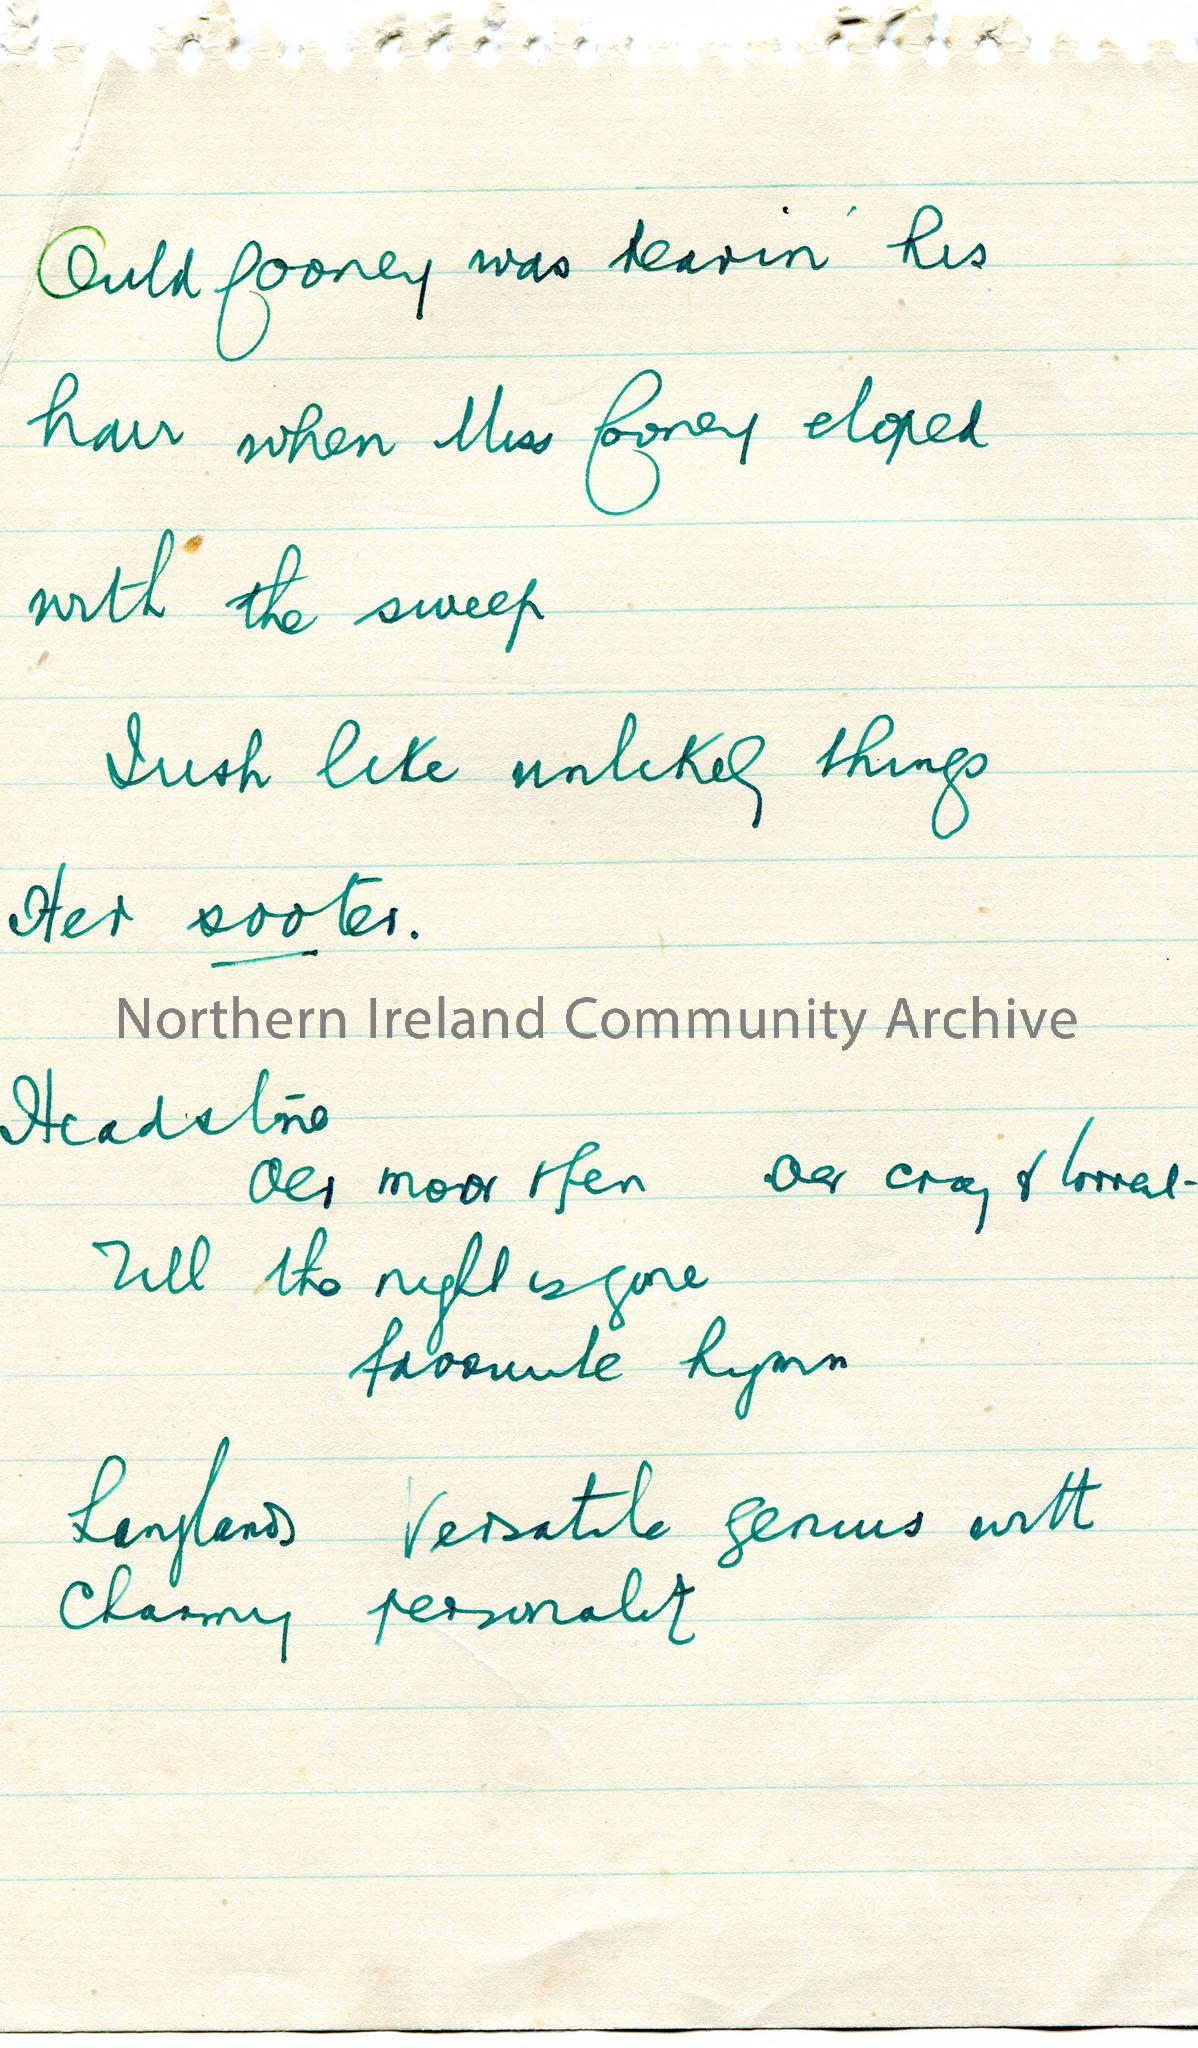 Ould Cooney was tearin' his
hair when Miss Cooney eloped
with the sweep
Irish like unlikely things
Her sooter.
Northern Ireland Community Archive
Headstone
Oer moor & fen Oer crag & torrent-
Till the night is gone
favourite hymn
Langlands Versatile genius with
Charming personality